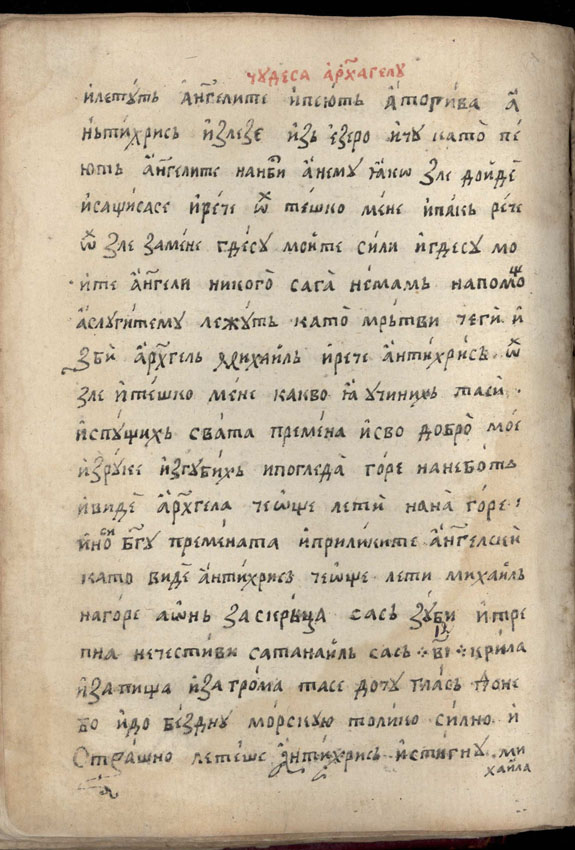 чꙋдеса а҆рх҃агелꙋ
и҆летꙋть а҆нг҃елите и҆пею́ть а҆тогива а҆
ньтихрись и҆зле́зе и҆зь е҆зеро и҆чꙋ като̀ пе
ють а҆нг҃елите а҆немꙋ ꙗко зле дойде
и҆рече ѿ те́шко мене и҆пакь рече
ѿ зле заме́не гдесꙋ мои́те сили и҆гдесꙋ мо
и҆те а҆нг҃ели никого̀ сага̀ не́мамь напомо
а҆слꙋгитемꙋ лежꙋть като̀ мрьтви чеги̇̀ и҆
зби̇̀ а҆рх҃гель михаи́ль и҆рече а҆нтихрись ѿ
зле и҆те́шко мене какво ꙗ ꙋчинихь таѐ
и҆спꙋщихь света премена и҆сво добро̀ мое
и҆зрꙋке и҆згꙋбихь ипогледа̀ горе нанеботь
и҆видѐ а҆рх҃гела чеѡ҆ще лети̇̀ нана̀ горе
и҆носи бг҃ꙋ премената и҆приликите а҆нг҃елскѝ
като видѐ а҆нтихрись чеѡ҆ще лети михаи́ль
нагоре аѡ҆нь заскрьца сась зꙋби и҆тре
пна нечести́ви сатанаиль сась ві҃ крила
и҆запища и҆загрома тасе дочꙋ глась доне
бо и҆до бе́зднꙋ мо́рскꙋю толико си́лно и҆
страшно лете́ше а҆нтихрись и҆стигнꙋ ми
хаи́ла